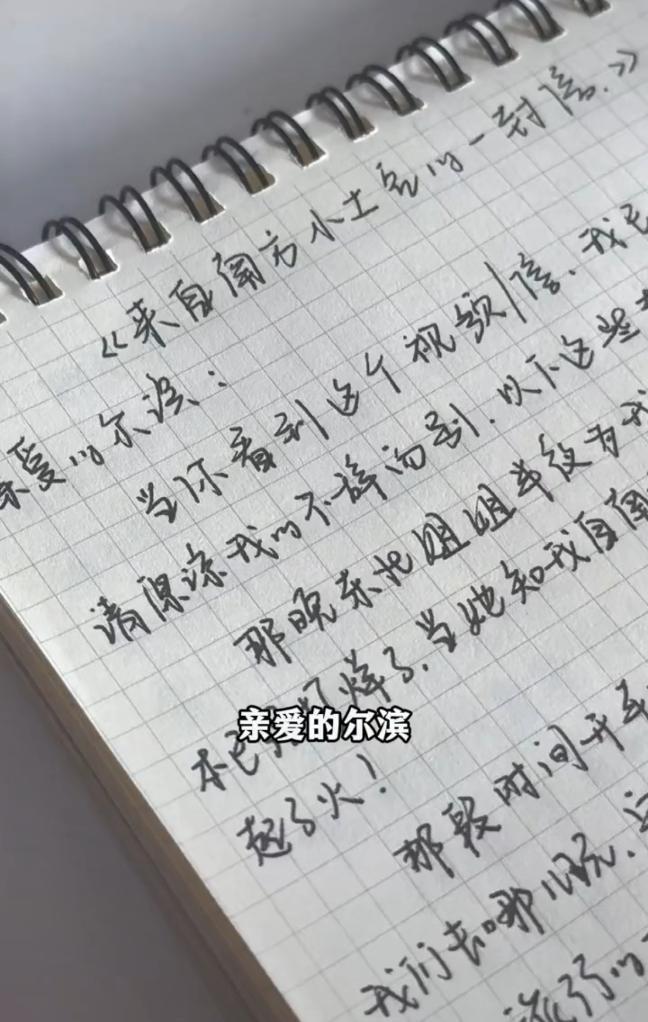 《来自南方小土豆的一封信.》
亲爱的尔滨：
当你看到这个视频/信、我已
请原谅我的不辞而别.以下这些
那晚东北姐姐半夜为我
本已打烊了.当她知我自南
亲爱的尔滨
起了火！
那段时间开车
我们去哪儿玩.